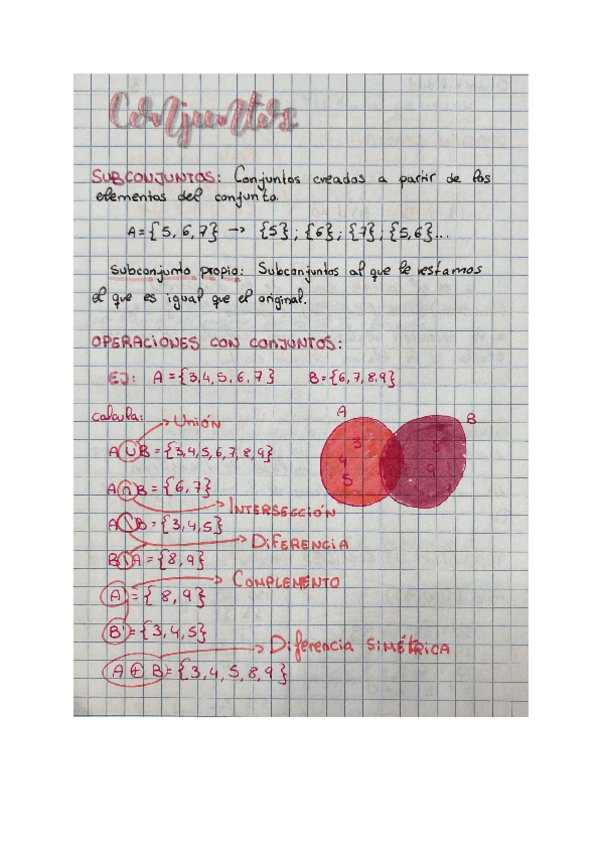 Conjuntos
SUBCONJUNTOS: Conjuntos creados a partir de los
elementos del conjunto.
A={5, 6, 7} -> {5} ; {6} ; {7} ; {5,6}...
Subconjunto propio: Subconjuntos al que le restamos
el que es igual que el original.
OPERACIONES CON CONJUNTOS:
EJ: A = {3,4, 5, 6, 7} B={6,7,8,9}
calcula:
Unión
A∪B={3,4,5,6,7,8,9}
A∩B={6,7}
INTERSECCIÓN
A\B={3,4,5}
DIFERENCIA
B\A={8,9}
COMPLEMENTO
A'={8,9}
B'={3,4,5}
Diferencia SIMÉTRICA
A⊕B={3,4,5,8,9}
A
B
3
4
5
8
9